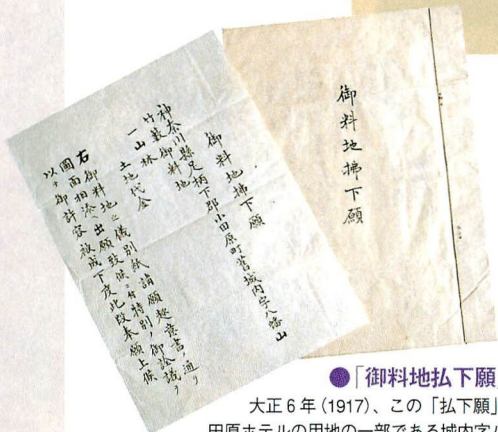 御料地拂下願
御料地拂下願
神奈川縣足柄下郡小田原町舊城内字八幡山
御料地
竹藪林
一山 土地代金
右御料地ニ儀別紙請願趣意書ノ通リ
圖面相添出願致候ニ付特別ノ御詮議ヲ
以テ御許容被成下度此段奉願上候
●「御料地払下願
大正6年(1917)、この「払下願」
田原ホテルの用地の一部である城内字